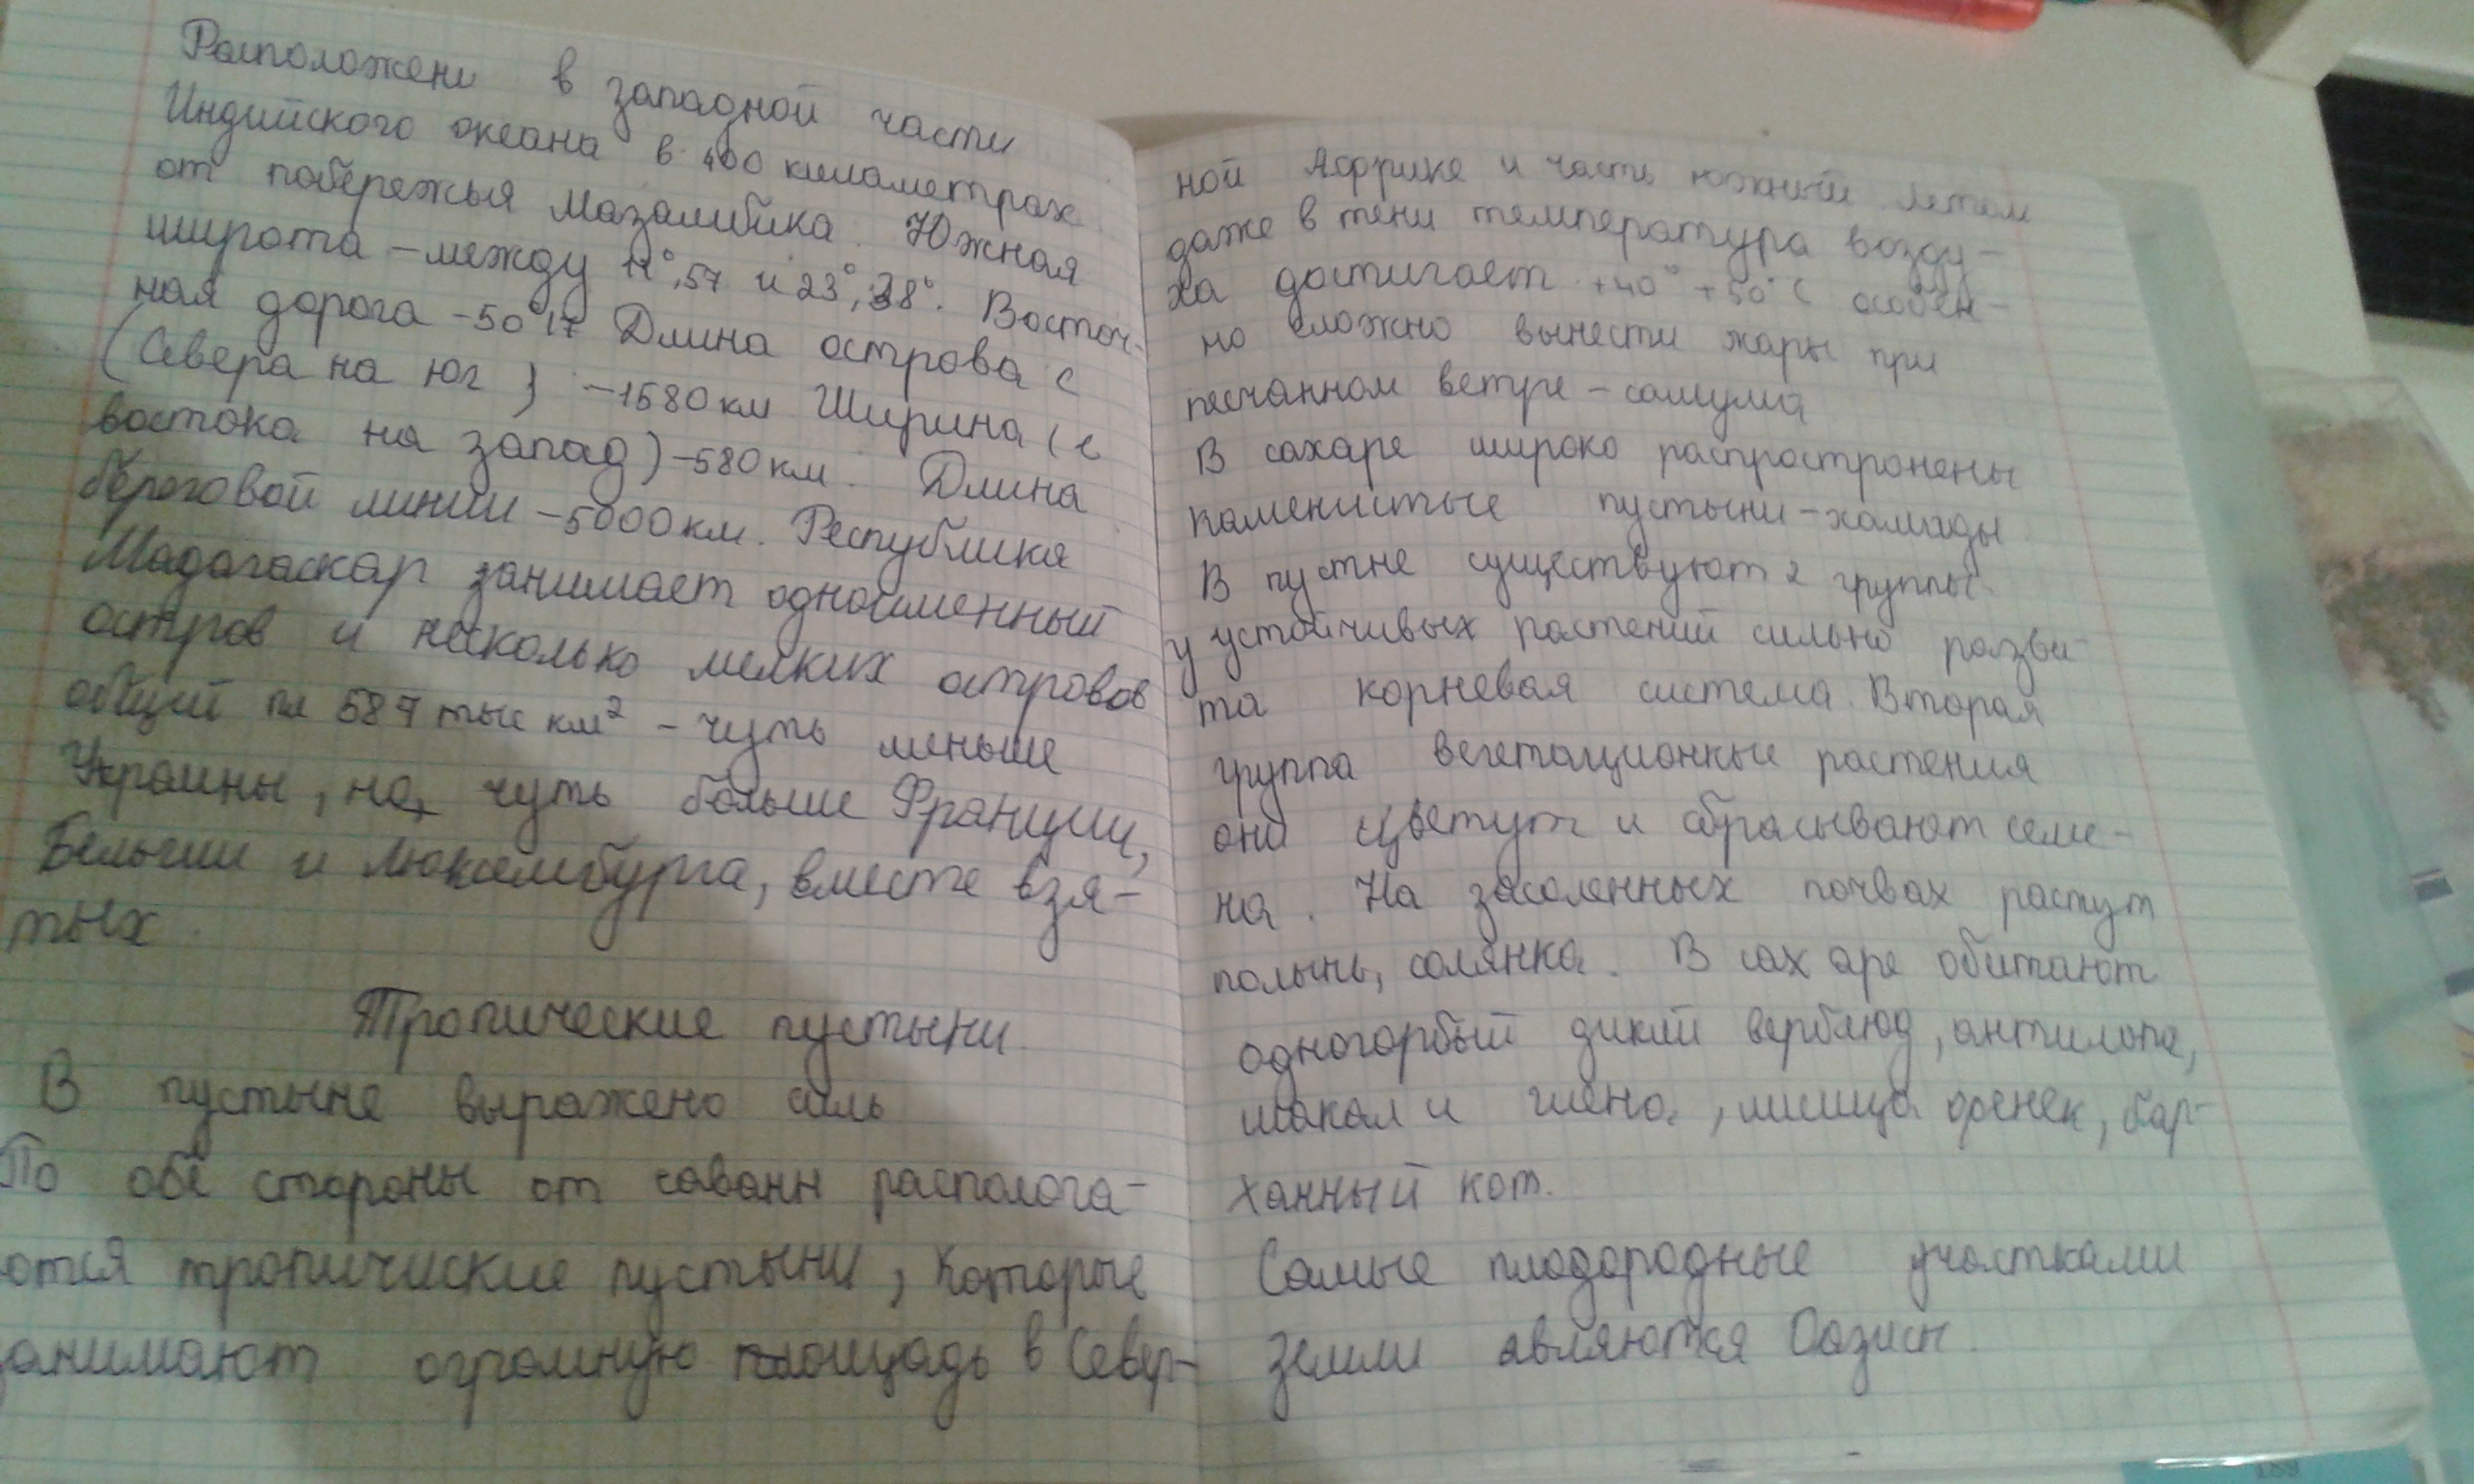 Расположени в западной части
Индийского океана в 400 километрах
от побережья Мазамбика. Южная
широта – между 11°,57 и 23°,38°. Восточ-
ная дорога -50°17 Длина острова с
(Севера на юг) -1580 км Ширина (с
востока на запад) -580 км. Длина
береговой линии -5000 км. Республика
Мадагаскар занимает одноименный
остров и несколько мелких островов
общий пл 587 тыс км² - чуть меньше
Украины, но, чуть больше Франции,
Бельгии и Люксембурга, вместе взя-
тых.
Тропические пустыни.
В пустыне выражено силь
По обе стороны от саванн располога-
ются тропичиские пустыни, которые
занимают огромную площадь в Север-
ной Африке и часть южный. Летом
даже в тени температура возду-
ха достигает +40° +50°С особен-
но сложно вынести жары при
песчанном ветре - самума
В сахаре широко распространены
каменистые пустыни - хамады.
В пустне существуют 2 группы
у устойчивых растений сильно разви-
та корневая система. Вторая
группа вегетационные растения
они цветут и сбрасывают семе-
на. На засоленных почвах растут
полынь, солянка. В сахаре обитают
одногорбый дикий верблюд, антилопа,
шакал и гиена, лисица фенек, бар-
ханный кот.
Самые плодородные участками
земли являются Оазисы.
189